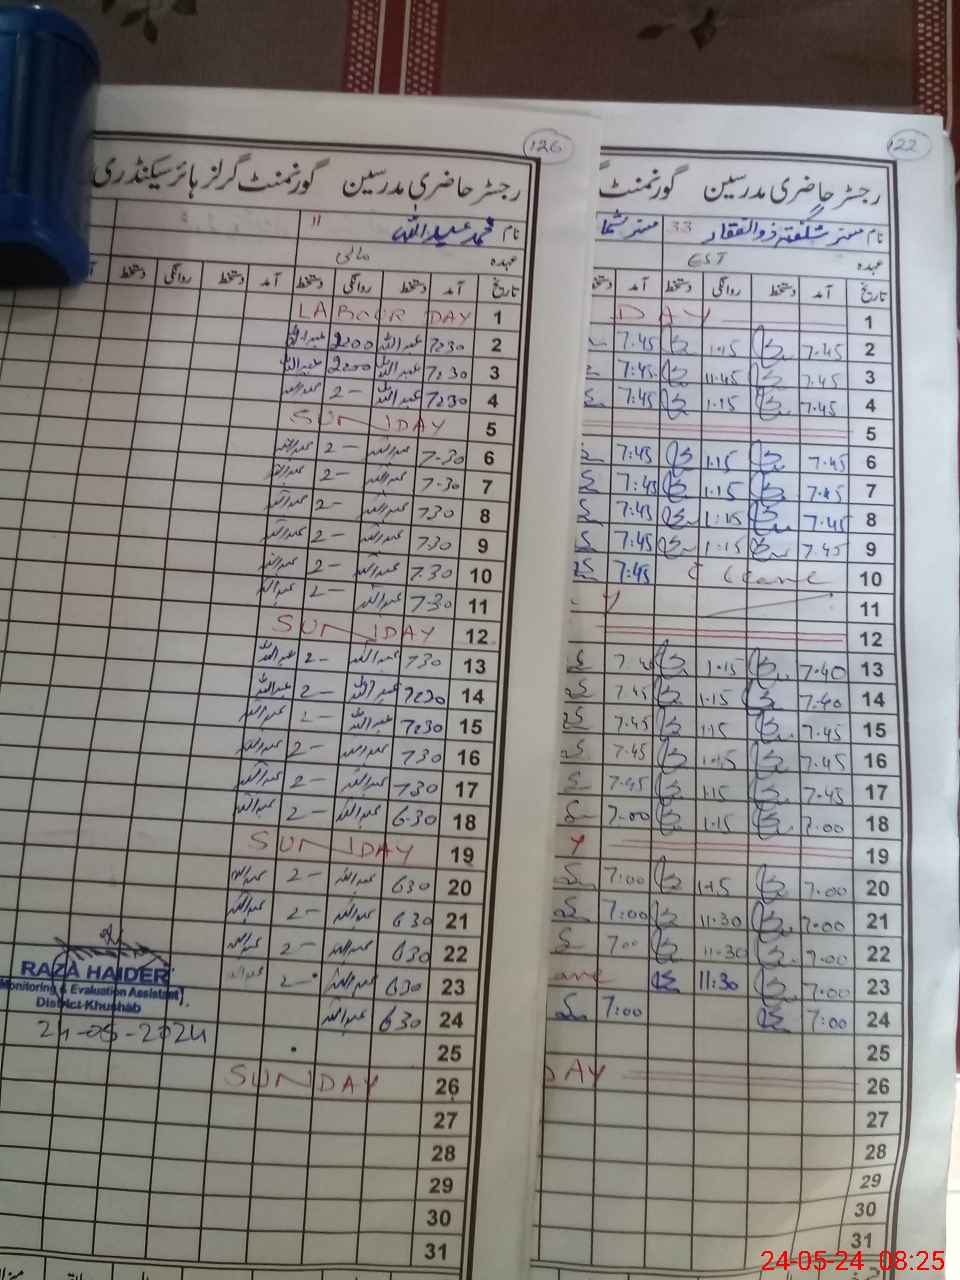 126
رجسٹر حاضری مدرسین گورنمنٹ گرلز ہائر سیکنڈری
نام محمد عبید اللہ "
عہدہ مالی
تاریخ آمد دستخط روانگی دستخط آمد دستخط روانگی دستخط
1 LABOUR DAY
2 7:30 عبداللہ 2:00 عبداللہ
3 7:30 عبداللہ 2:00 عبداللہ
4 7:30 عبداللہ 2- عبداللہ
5 SUNDAY
6 7.30 عبداللہ 2- عبداللہ
7 7.30 عبداللہ 2- عبداللہ
8 730 عبداللہ 2- عبداللہ
9 730 عبداللہ 2- عبداللہ
10 7.30 عبداللہ 2- عبداللہ
11 7.30 عبداللہ 2- عبداللہ
12 SUNDAY
13 730 عبداللہ 2- عبداللہ
14 7:30 عبداللہ 2- عبداللہ
15 7:30 عبداللہ 2- عبداللہ
16 730 عبداللہ 2- عبداللہ
17 730 عبداللہ 2- عبداللہ
18 6.30 عبداللہ 2- عبداللہ
19 SUNDAY
20 630 عبداللہ 2- عبداللہ
21 630 عبداللہ 2- عبداللہ
22 630 عبداللہ 2- عبداللہ
23 630 عبداللہ 2- عبداللہ
24 630 عبداللہ
25
26 SUNDAY
27
28
29
30
31
RAZA HAIDER
Monitoring & Evaluation Assistant
District Khushab
24-05-2024
122
رجسٹر حاضری مدرسین گورنمنٹ گ
نام مسز شگفتہ ذوالفقار 33 مسز شما
عہدہ EST
تاریخ آمد دستخط روانگی دستخط آمد
1 DAY
2 7.45 1.15 7.45
3 7.45 11.45 7:45
4 7.45 1.15 7:45
5
6 7.45 1.15 7:45
7 7.45 1.15 7:45
8 7.45 1:15 7:45
9 7.45 1:15 7:45
10 C Leave 7:45
11 Y
12
13 7.40 1.15
14 7.40 1.15 7.45
15 7.45 1.15 7.45
16 7.45 1.15 7.45
17 7.45 1.15 7.45
18 7.00 1.15 7.00
19 Y
20 7.00 1.15 7:00
21 7.00 11.30 7:00
22 7.00 11.30 7:00
23 7.00 11:30 ave
24 7:00 7:00
25
26 DAY
27
28
29
30
31
24-05-24 08:25